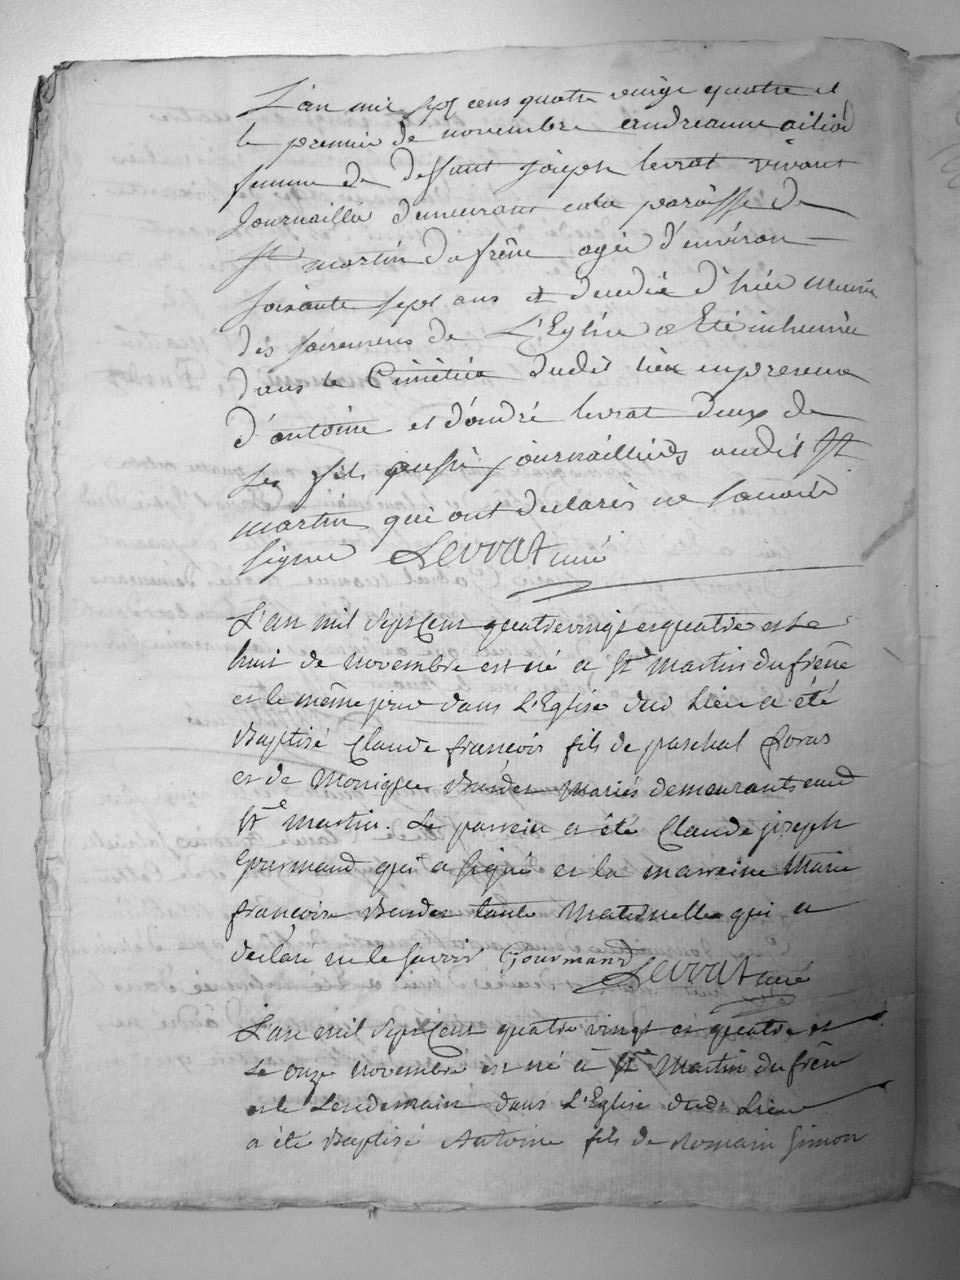 L'an mil sept cens quatre vingt quatre et
le premier de novembre andreanne
femme de deffunt joseph levrat vivant
Journaillié demeurant en la paroisse de
St martin du frêne agée d'environ
soixante sept ans et decedée d'hier munie
des sacremens de L'Eglise a Eté inhumée
dans le Cimetiére dudit lieu en presence
d'antoine et d'andré levrat deux de
ses fils aussi journailliers audit St
martin qui ont declarés ne savoir
signer Levrat curé
L'an mil sept Cent quatrevingt et quatre et Le
huit de novembre est né a St Martin du frêne
et le même jour dans L'Eglise dud Lieu a été
Baptisé Claude françois fils de paschal Joras
et de Monique Burdet Mariés demeurants aud
St Martin. Le parrein a été Claude joseph
Gourmand qui a signé et la marreine Marie
françoise Burdet tante Maternelle qui a
declaré ne le savoir Gourmand Levrat curé
L'an mil sept Cent quatre vingt et quatre et
Le onze Novembre est né a St Martin du frêne
et le Lendemain dans L'Eglise dud. Lieu
a été Baptisé Antoine fils de Romain Simon